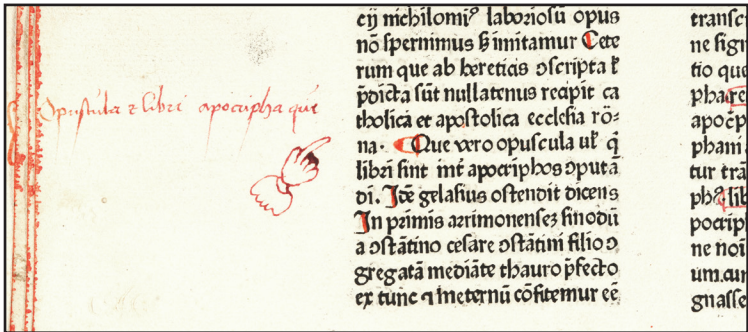 Opuscula ⁊ libri apocripha que
cij nichilomiꝰ laboriosū opus
nō spernimus ꝫ imitamur Cete
rum que ab hereticis ↄscripta ł
p̄dicta sūt nullatenus recipit ca
tholicā et apostolica ecclesia rō⸗
na. Que vero opuscula ul̓ q̄
libri sint int̓ apocriphos ↄputā
di. Idē gelasius ostendit dicens
In primis arrimonensez sinodū
a ↄstātino cesare ↄstātini filio ↄ
gregatā mediāte thauro p̄fecto
ex tunc ⁊ ineternū cōfitemur eē
transc
ne sign
tio que
pha re
apoc̄p
phani
tur trā
phꝰ lib
pocrip
ne noī
um.cur
gnasse